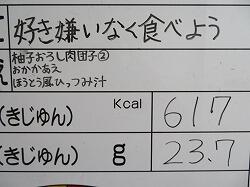 好き嫌いなく食べよう
柚子おろし肉団子②
おかかあえ
ほうとう風ひっつみ汁
(きじゅん) Kcal 617
(きじゅん) g 23.7